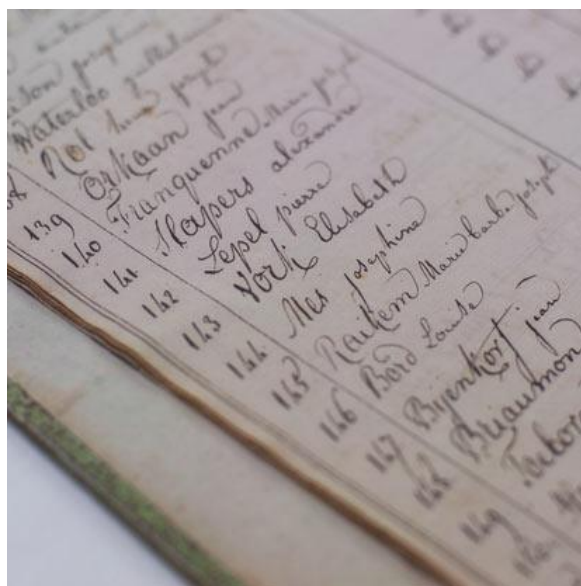 josephine
Waterloo guillelmine
Rol
139 Orkaan jean
140 Franquenne Marie joseph
141 Slapers alexandre
142 Lepel pierre
143 York Elisabeth
144 Mes josephine
145 Raikem Marie barbe joseph
146 Bord Louise
147 Bijenkorf jean
148 Briaumon
149